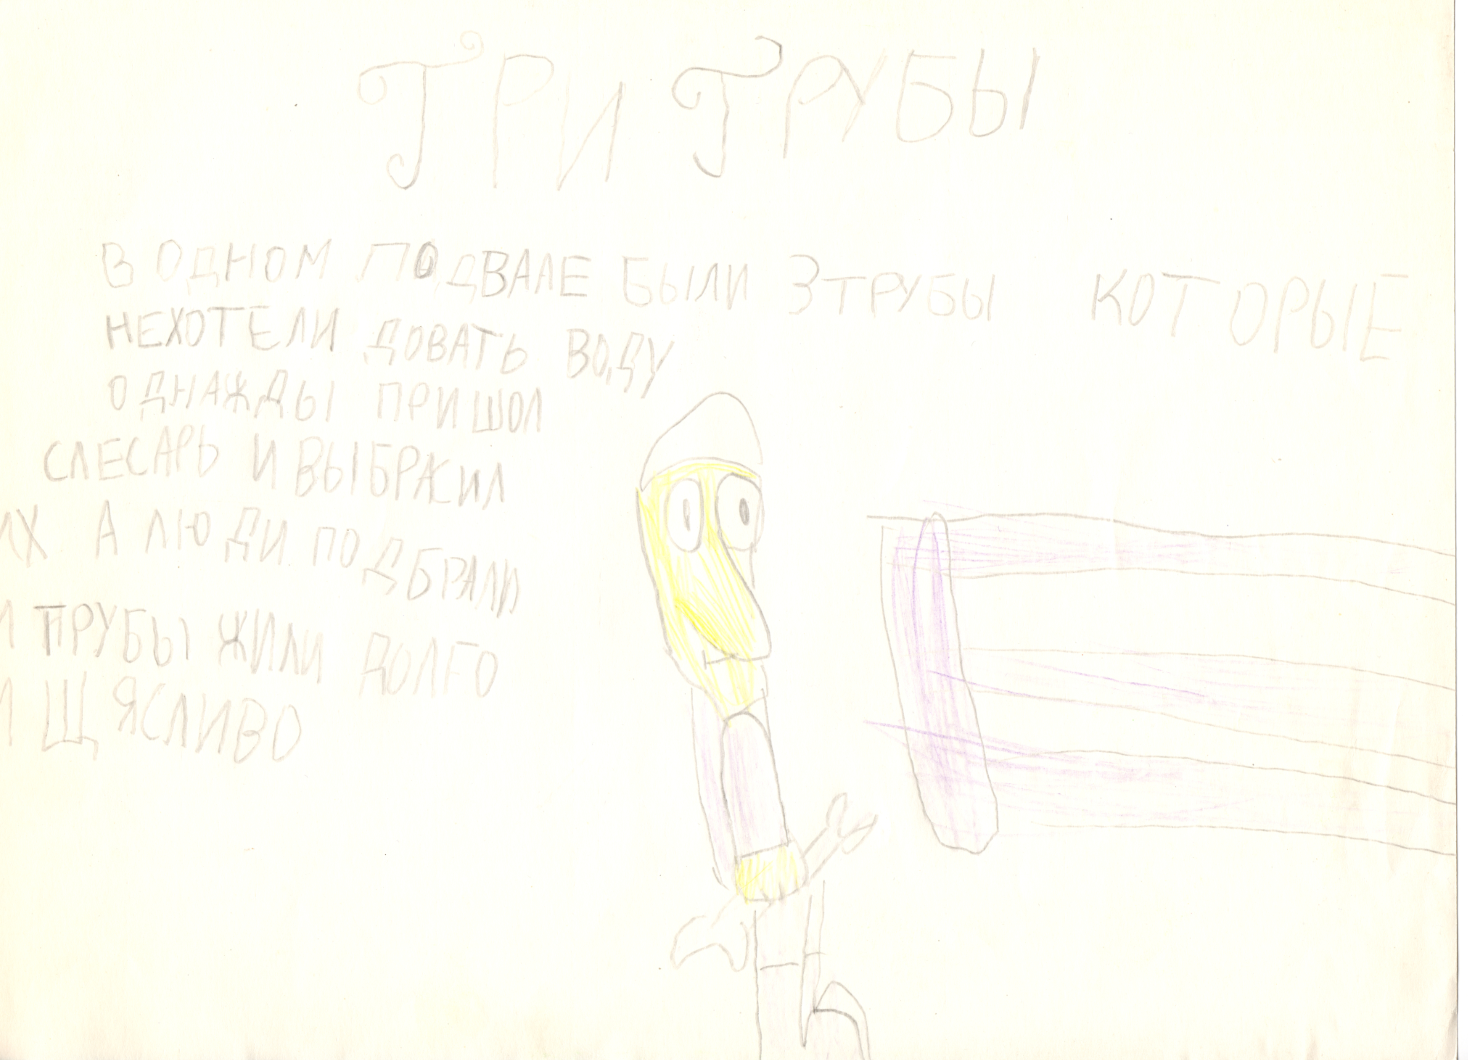 ТРИ ТРУБЫ
В ОДНОМ ПОДВАЛЕ БЫЛИ 3 ТРУБЫ КОТОРЫЕ
НЕХОТЕЛИ ДОВАТЬ ВОДУ
ОДНАЖДЫ ПРИШОЛ
СЛЕСАРЬ И ВЫБРАСИЛ
ИХ А ЛЮДИ ПОДБРАЛИ
И ТРУБЫ ЖИЛИ ДОЛГО
И ЩЯСЛИВО